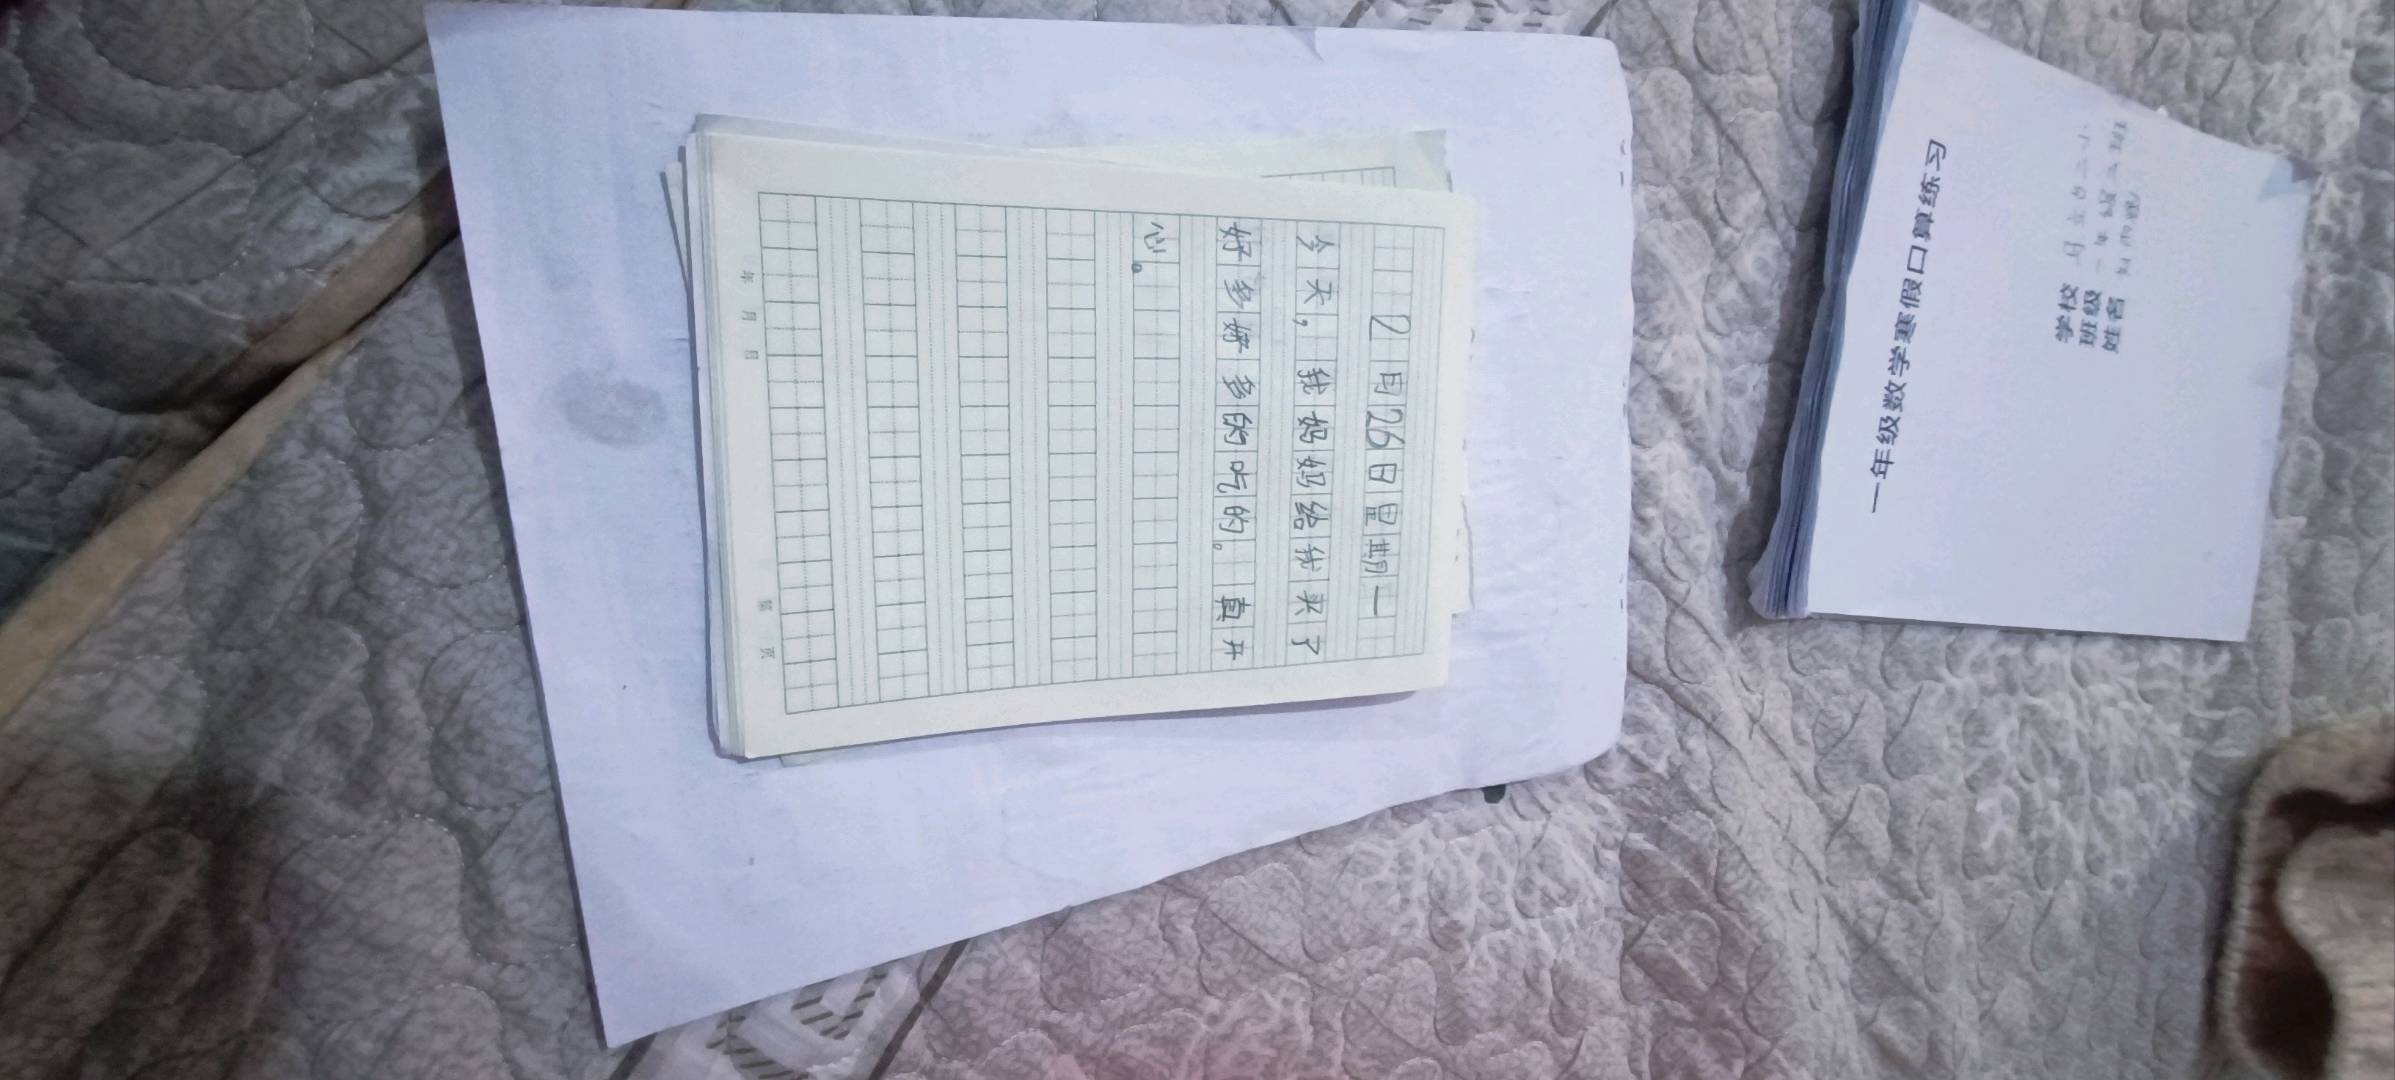 2月26日星期一
今天，我妈妈给我买了
好多好多的吃的。真开
心。
年 月 日
第 页
一年级数学寒假口算练习
学校
班级 一年级二班
姓名